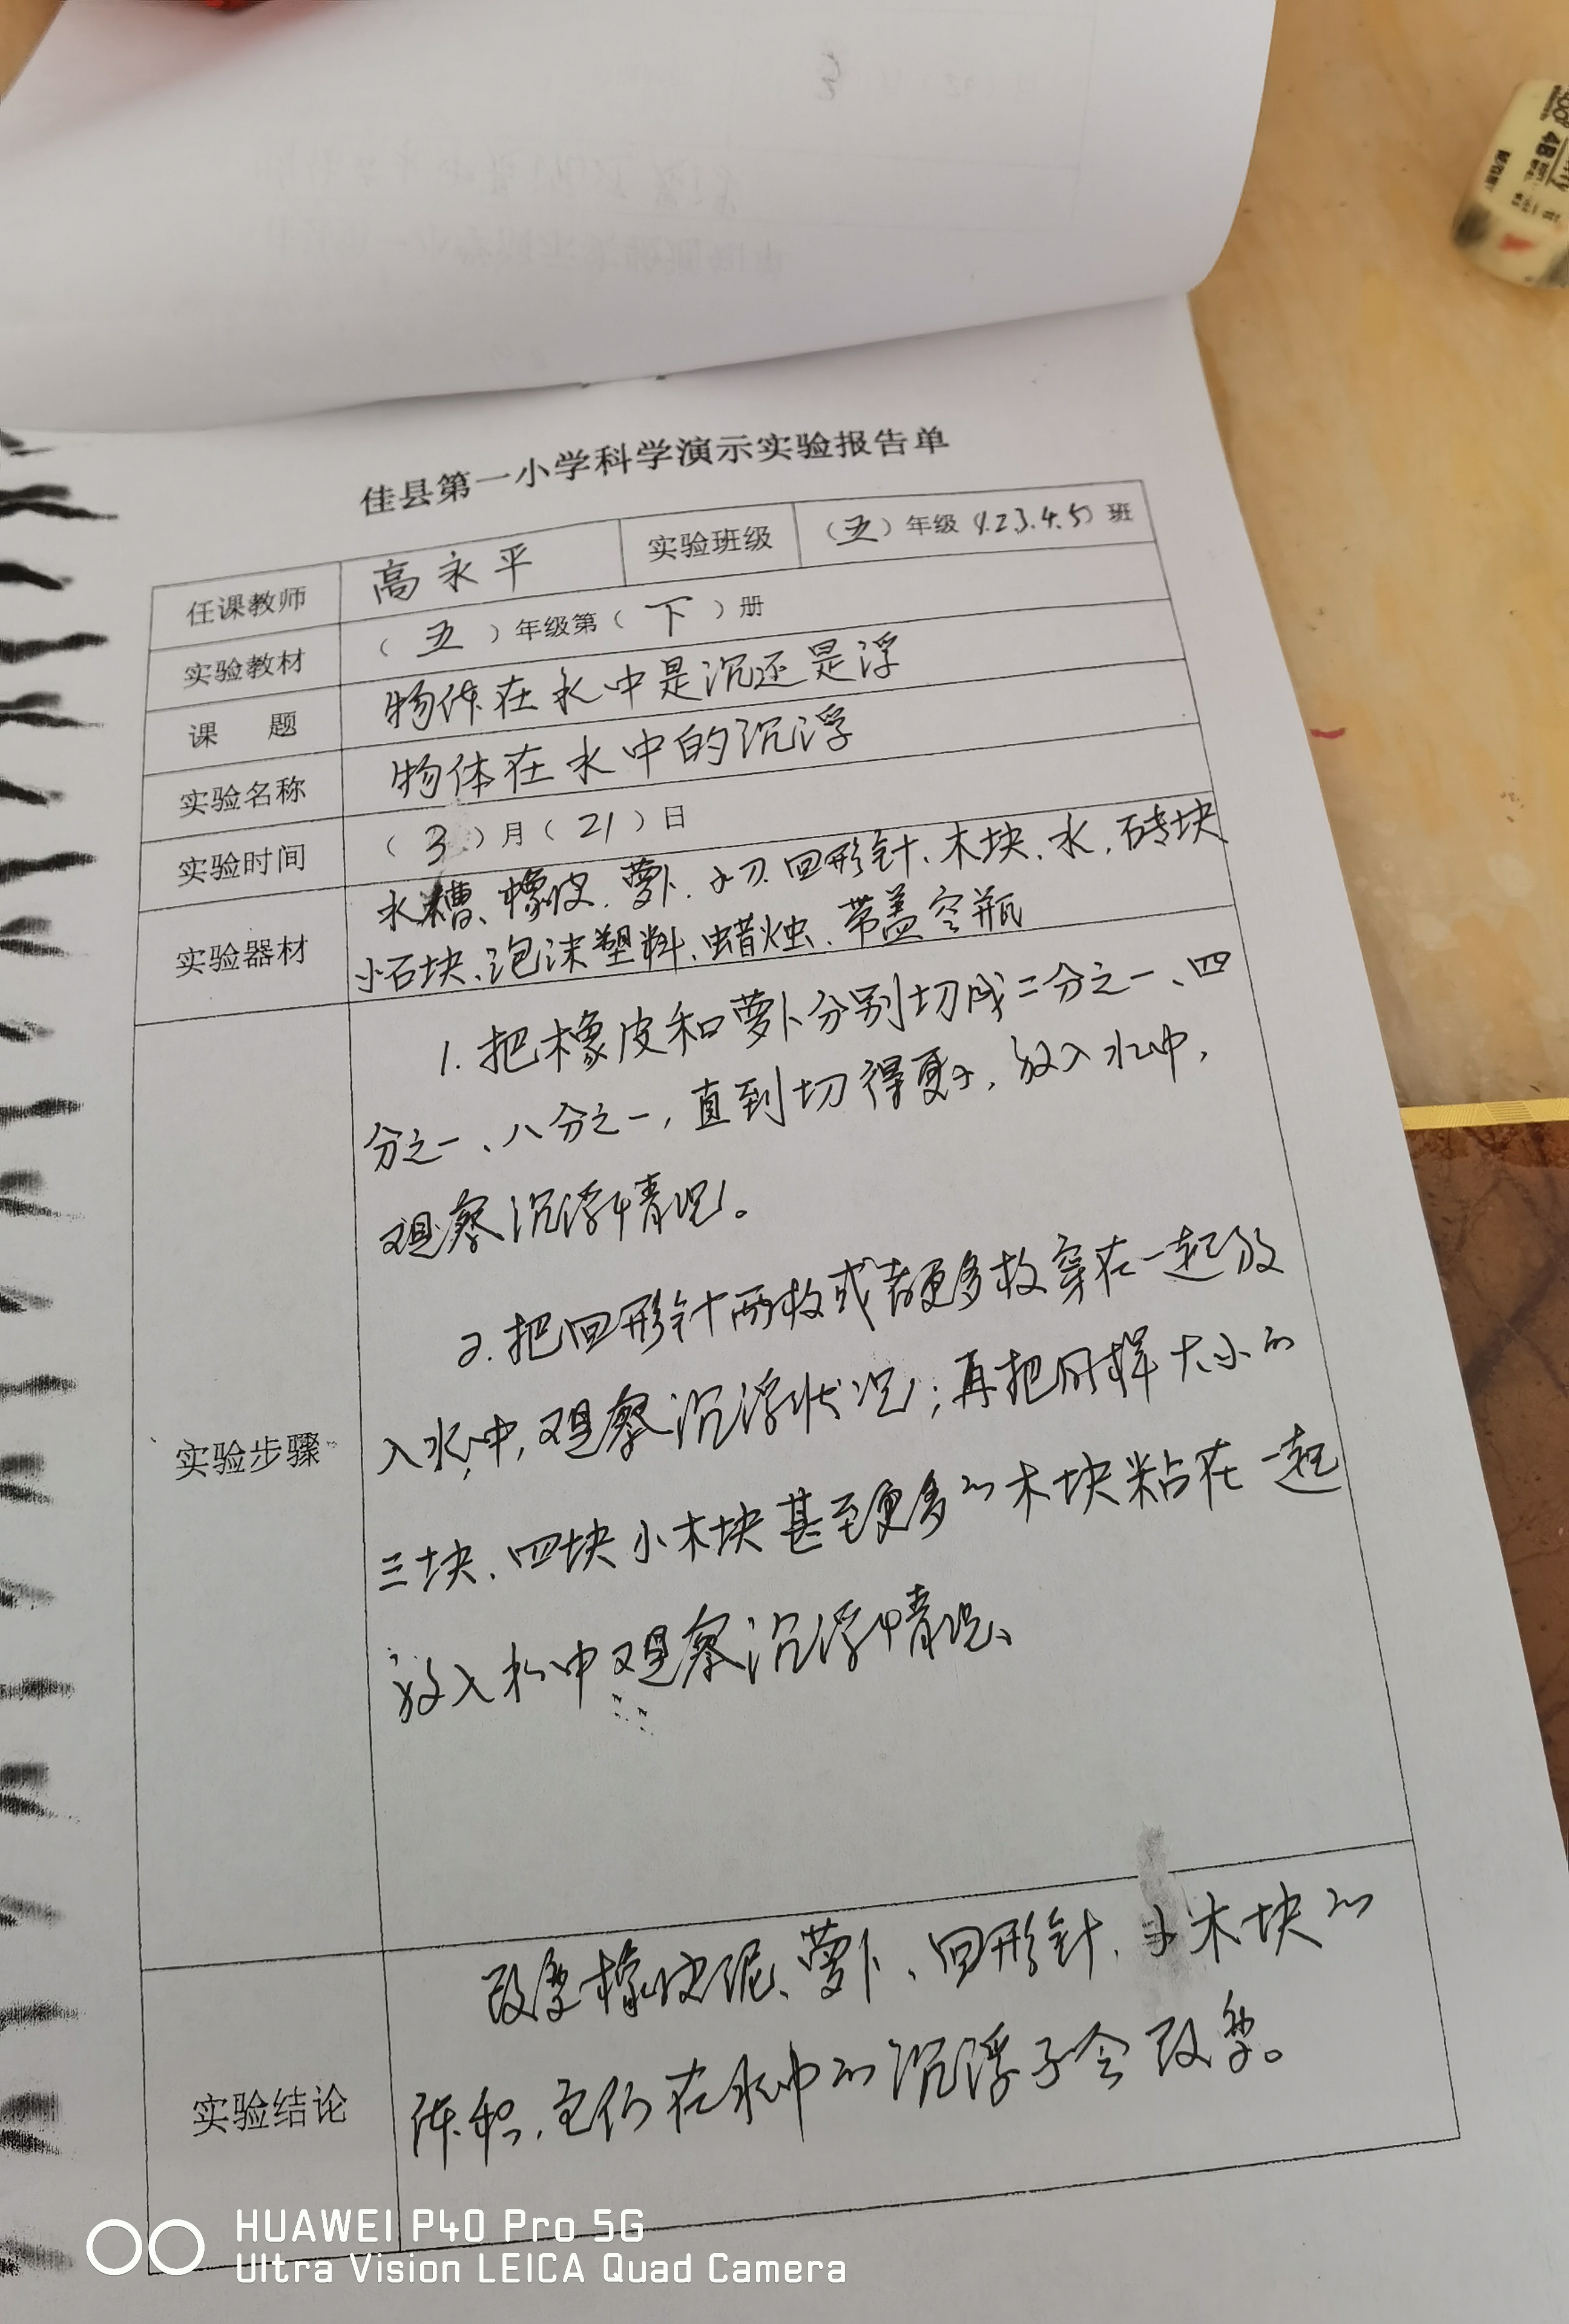 佳县第一小学科学演示实验报告单
任课教师 高永平 实验班级 （五）年级（1.2.3.4.5）班
实验教材 （五）年级第（下）册
课 题 物体在水中是沉还是浮
实验名称 物体在水中的沉浮
实验时间 （3）月（21）日
实验器材 水槽、橡皮、萝卜、小刀、回形针、木块、水、砖块
小石块、泡沫塑料、蜡烛、带盖空瓶
实验步骤
1. 把橡皮和萝卜分别切成二分之一、四
分之一、八分之一，直到切得更小，放入水中，
观察沉浮情况。
2. 把回形针两枚或者更多枚穿在一起放
入水中，观察沉浮状况；再把同样大小的
三块、四块小木块甚至更多的木块粘在一起
放入水中观察沉浮情况、
实验结论
改变橡皮泥、萝卜、回形针、小木块的
体积，它们在水中的沉浮不会改变。
HUAWEI P40 Pro 5G
Ultra Vision LEICA Quad Camera
4B